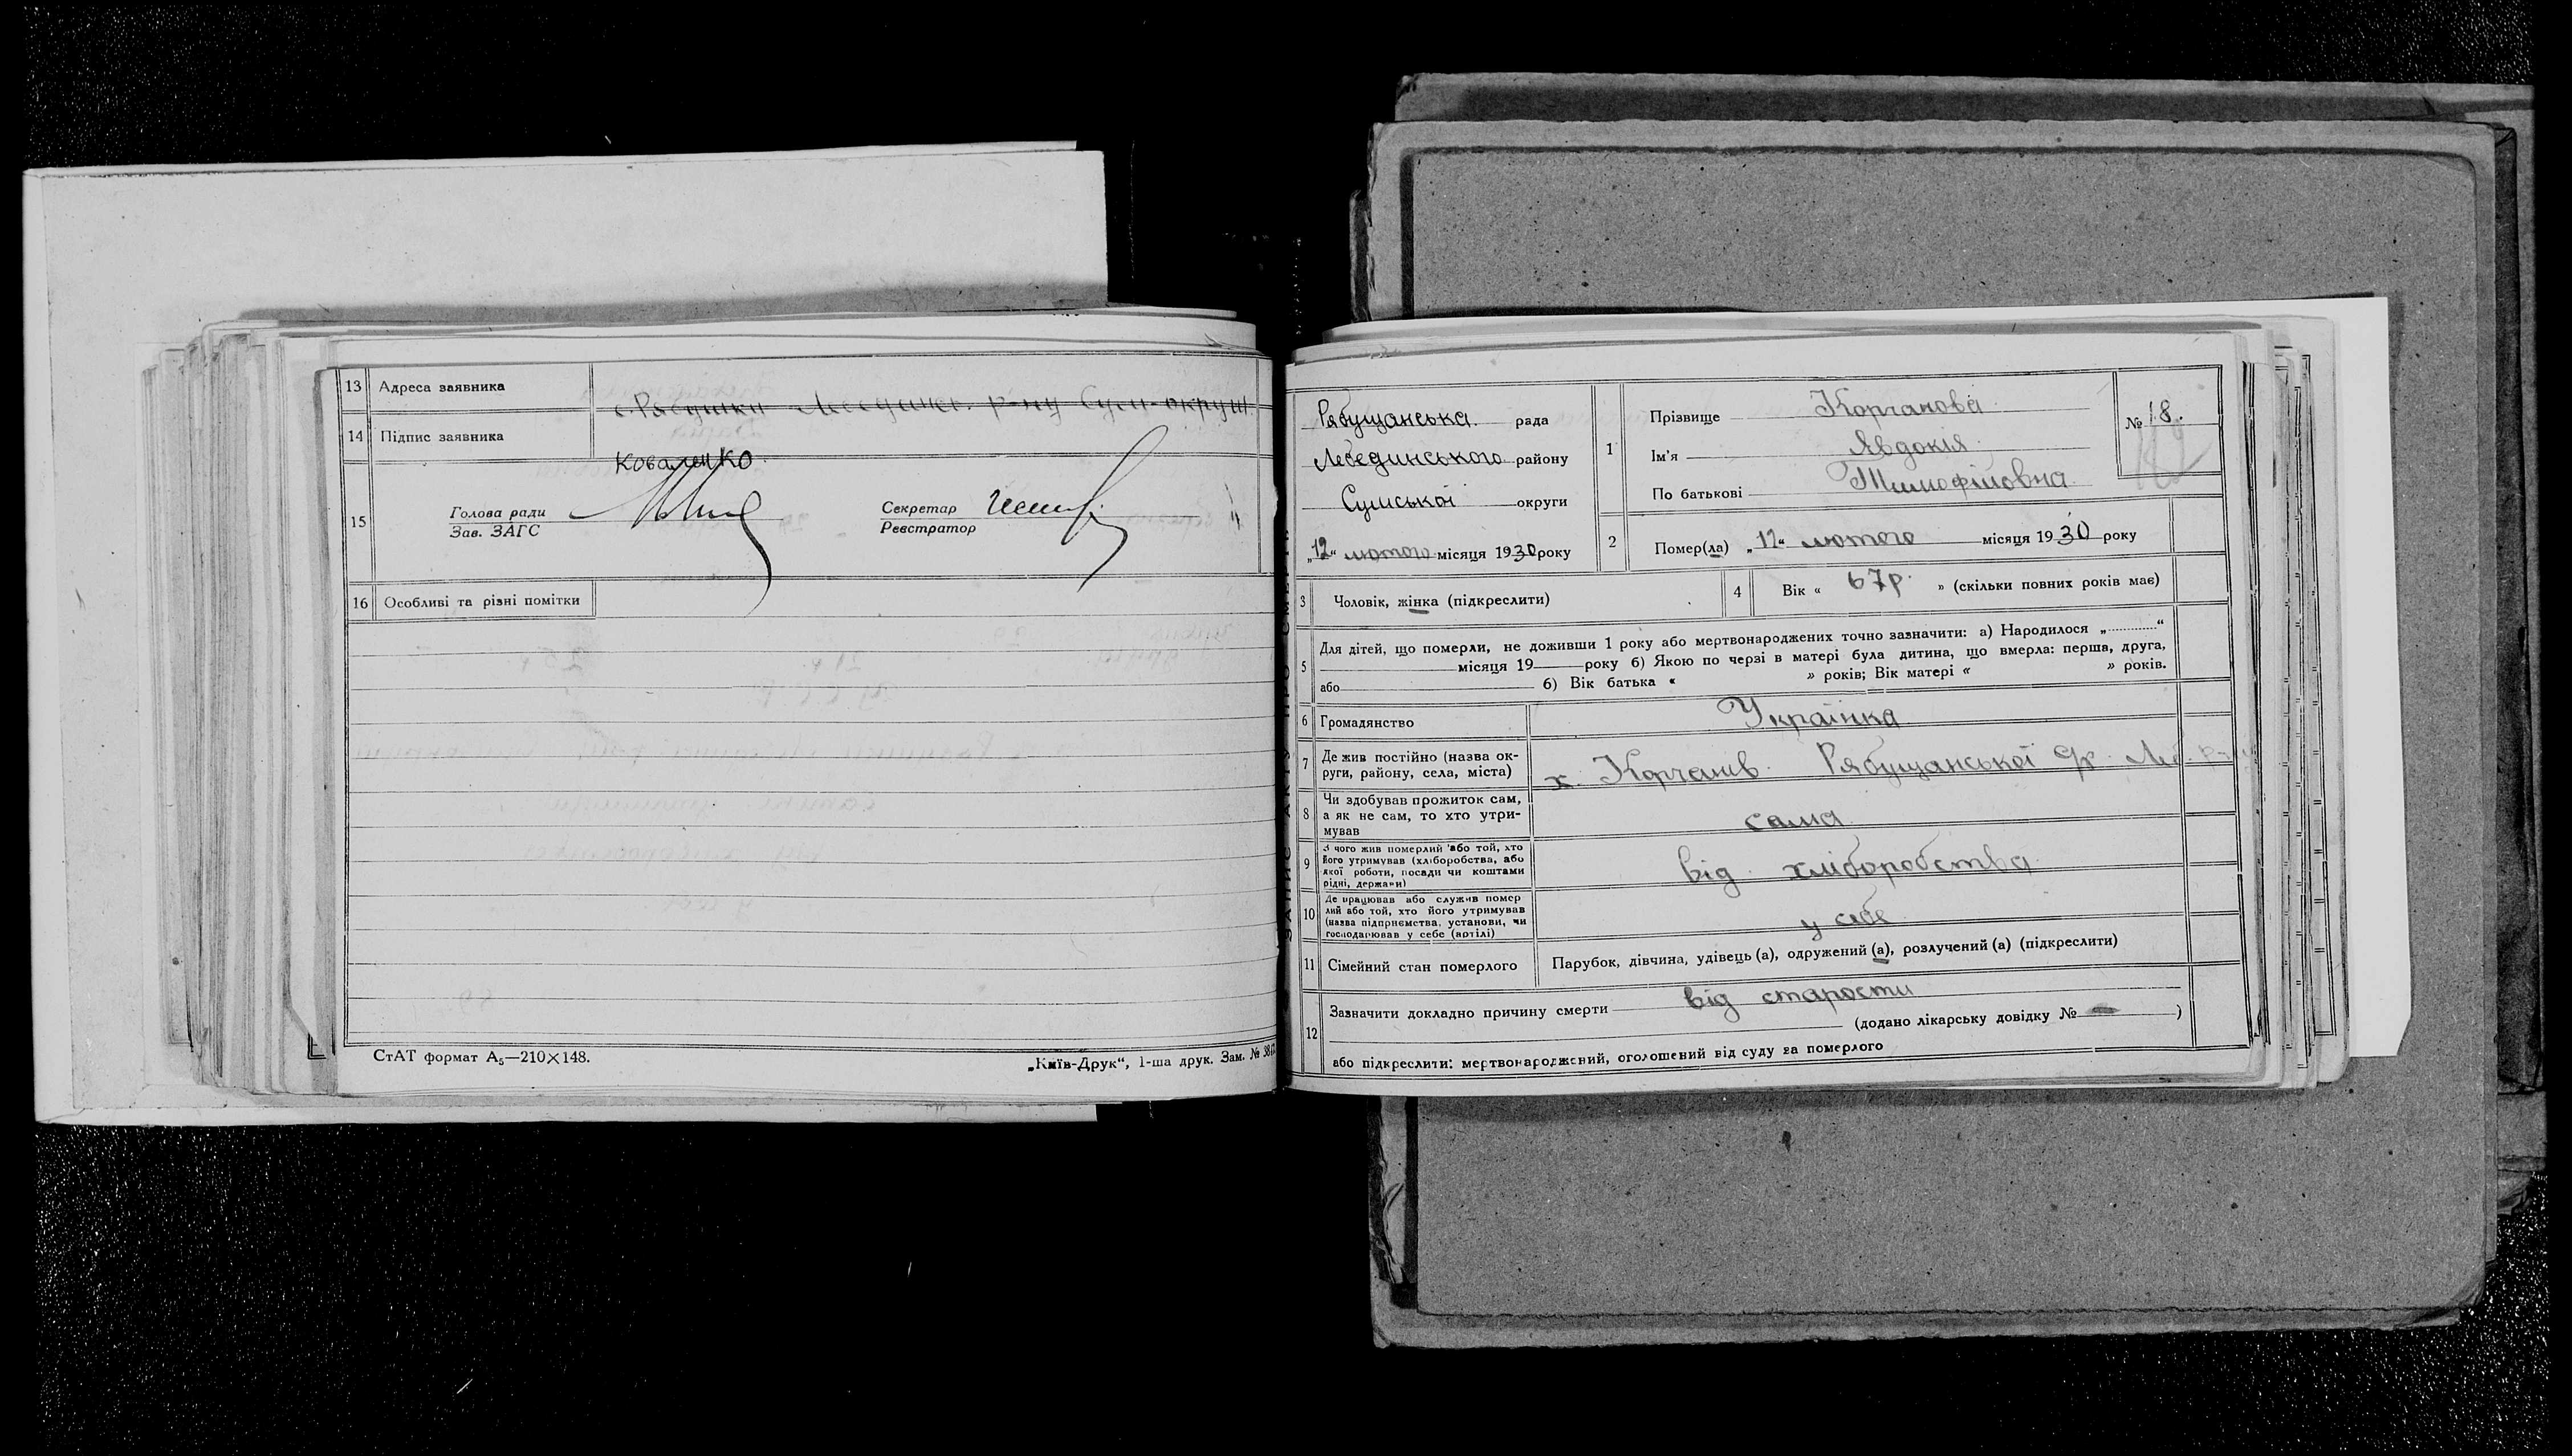 13 Адреса заявника с. Рябушки Лебединс. р-ну Сум-округи
14 Підпис заявника Коваленко
15 Голова ради Секретар
Зав. ЗАГС Реєстратор
16 Особливі та різні помітки
СтАТ формат А5—210×148. „Київ-Друк“, 1-ша друк. Зам. №
Рябущанська рада
Лебединського району
Сумської округи
„12“ лютого місяця 1930 року
1 Прізвище Корчанова
Ім'я Явдокія
По батькові Тимофіївна
№ 18.
2 Помер(ла) „12“ лютого місяця 1930 року
3 Чоловік, жінка (підкреслити) 4 Вік « 67 р. » (скільки повних років має)
5 Для дітей, що померли, не доживши 1 року або мертвонароджених точно зазначити: а) Народилося „............“
місяця 19 року б) Якою по черзі в матері була дитина, що вмерла: перша, друга,
або б) Вік батька « » років; Вік матері « » років.
6 Громадянство Українка
7 Де жив постійно (назва ок-
руги, району, села, міста) х. Корчанів Рябущанської с/р. Леб. р-ну
8 Чи здобував прожиток сам,
а як не сам, то хто утри-
мував сама
9 З чого жив померлий або той, хто
його утримував (хліборобства, або
якої роботи, посади чи коштами
рідні, держави) від хліборобства
10 Де працював або служив помер
лий або той, хто його утримував
(назва підприємства, установи, чи
господарював у себе (артілі) у себе
11 Сімейний стан померлого Парубок, дівчина, удівець (а), одружений (а), розлучений (а) (підкреслити)
12 Зазначити докладно причину смерти від старости
(додано лікарську довідку № — )
або підкреслити: мертвонароджений, оголошений від суду за померлого